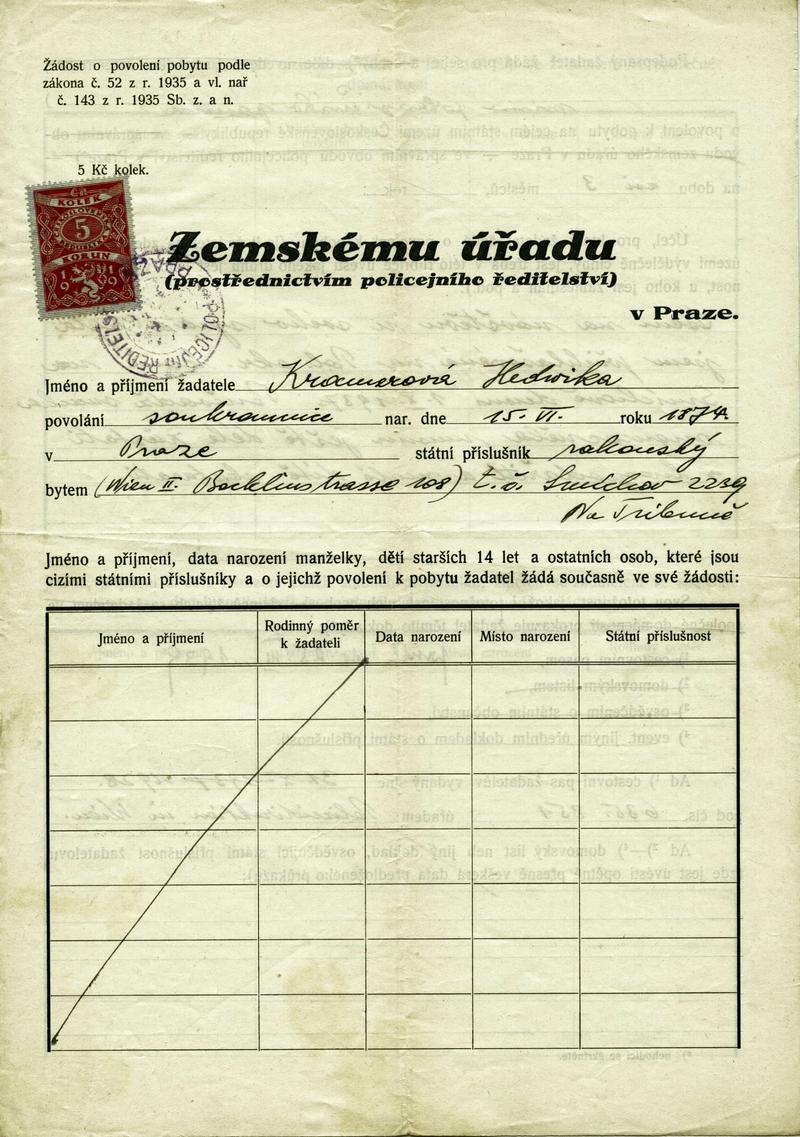 Žádost o povolení pobytu podle
zákona č. 52 z r. 1935 a vl. nař
č. 143 z r. 1935 Sb. z. a n.
5 Kč kolek.
KOLEK
5
KORUN
Zemskému úřadu
(prostřednictvím policejního ředitelství)
v Praze.
Jméno a příjmení žadatele Kramerová Hedwika
povolání soukromnice nar. dne 15. VI. roku 1874.
v Praze státní příslušník rakouský
bytem (Wien II. Böcklinstrasse 108) t. č. Smíchov 2239
Na
Jméno a příjmení, data narození manželky, dětí starších 14 let a ostatních osob, které jsou
cizími státními příslušníky a o jejichž povolení k pobytu žadatel žádá současně ve své žádosti:
Jméno a příjmení
Rodinný poměr
k žadateli
Data narození
Místo narození
Státní příslušnost